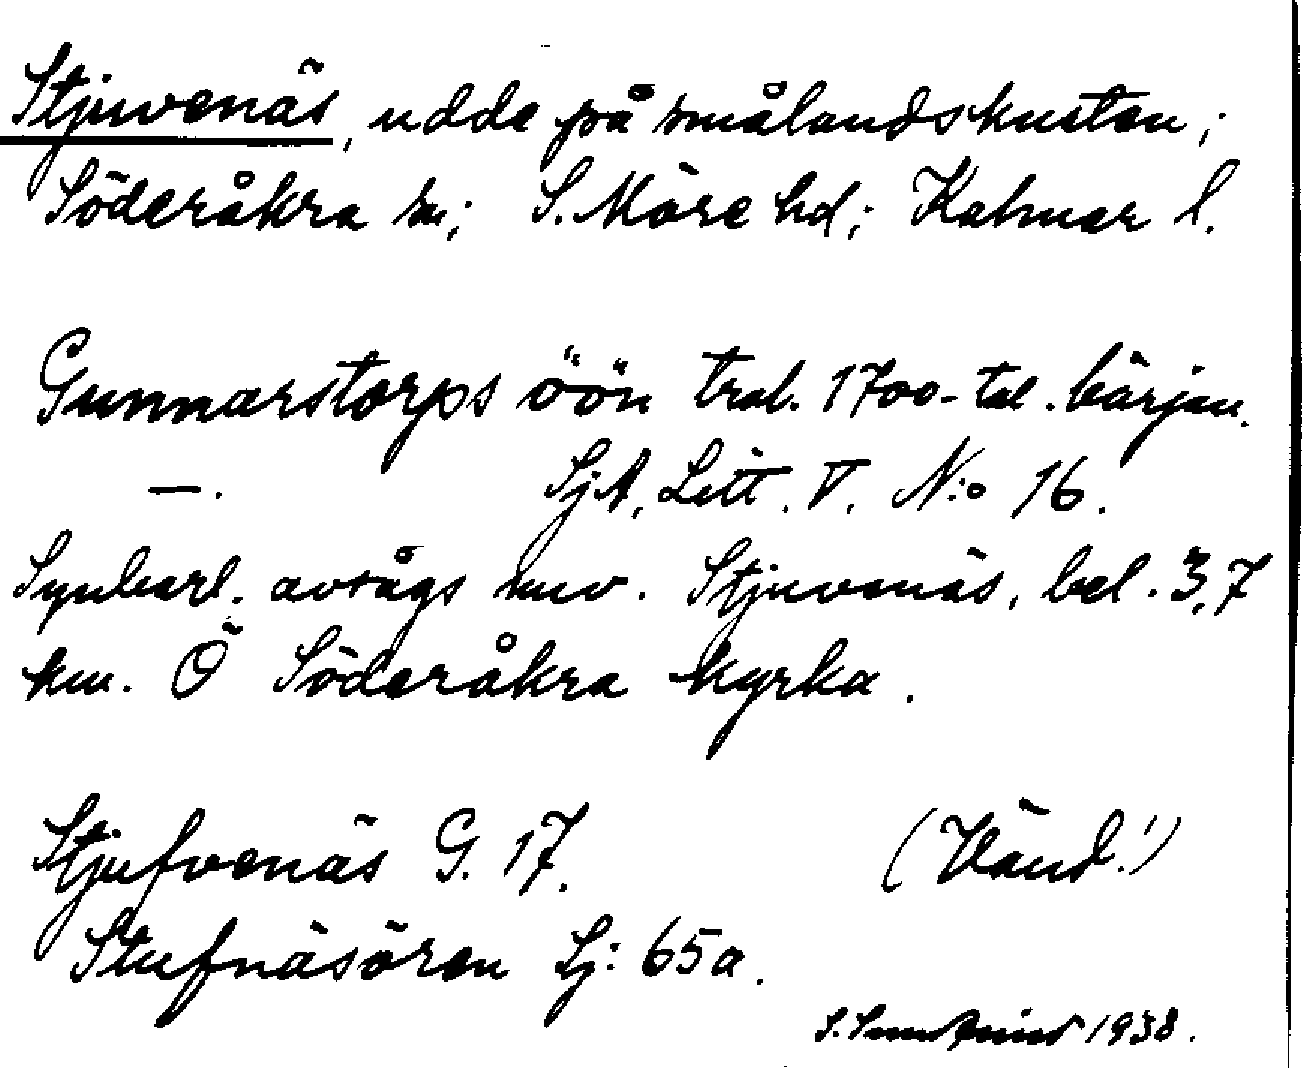 Stjuvenäs, udde på smålandskusten;
Söderåkra sn; S. Möre hd; Kalmar l.
Gunnarstorps öön trol. 1700-tal. början.
—. SjA, Litt. V. N:o 16.
Synbarl. avsågs nuv. Stjuvenäs, bel. 3,7
km. Ö Söderåkra kyrka.
Stjufvenäs G. 17. (Vänd!)
Stufnäsören Sj: 65a.
1938.